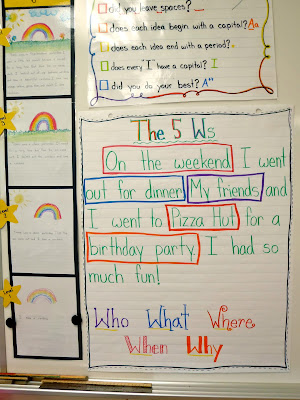 did you leave spaces?
does each idea begin with a capital? Aa
does each idea end with a period? .
does every I have a capital? I
did you do your best? A+
The 5 Ws
On the weekend I went
out for dinner. My friends and
I went to Pizza Hut for a
birthday party. I had so
much fun!
Who What Where
When Why